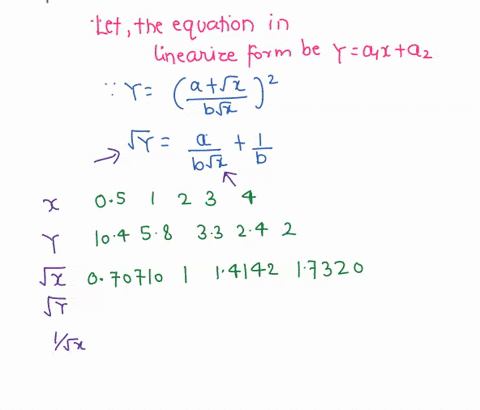 Let, the equation in
linearize form be Y = a₁x + a₂
∵ Y = ((a+√x)/(b√x))²
√Y = a/(b√x) + 1/b
x 0.5 1 2 3 4
Y 10.4 5.8 3.3 2.4 2
√x 0.70710 1 1.4142 1.7320
√Y
1/√x